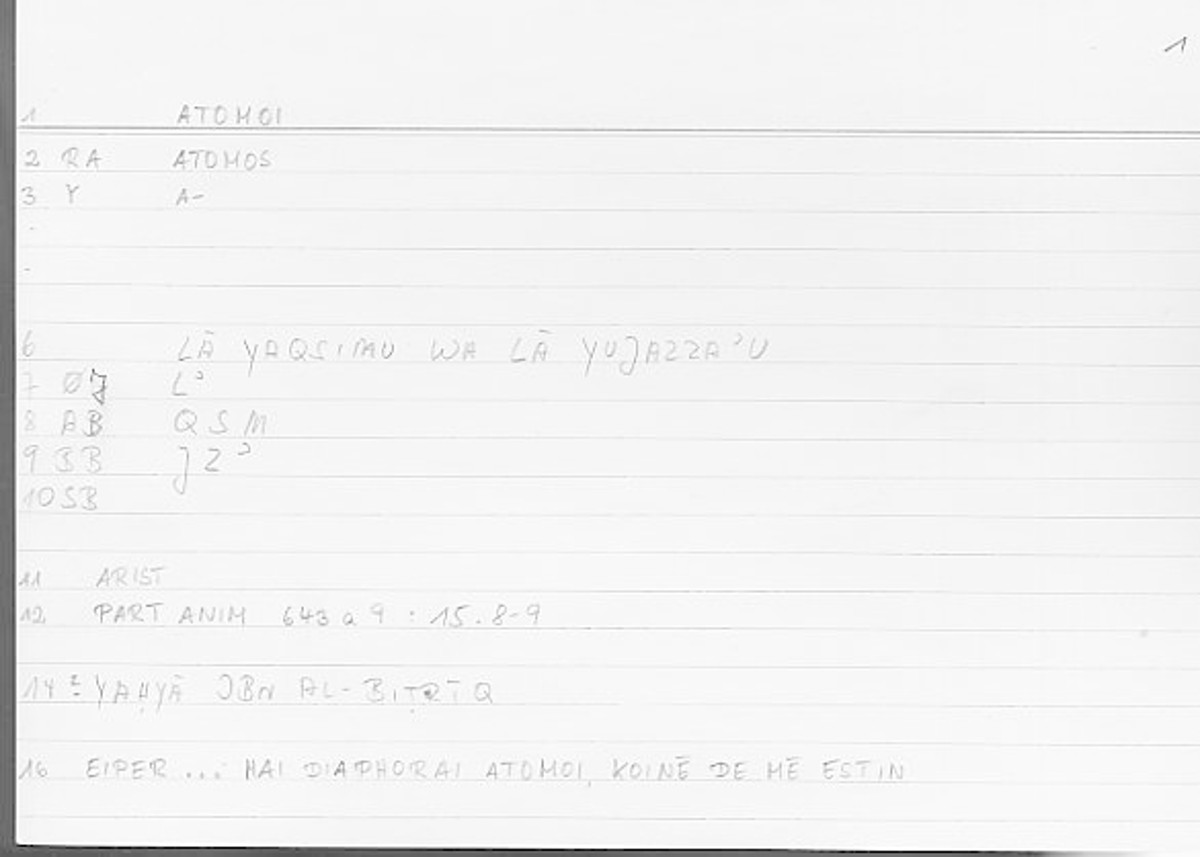 1
1 ATOMOI
2 RA ATOMOS
3 Y A-
-
-
6 LĀ YAQSIMU WA LĀ YUJAZZAʾU
7 ØJ Lʾ
8 AB QSM
9 BB JZʾ
10 SB
11 ARIST
12 PART ANIM 643 a 9 : 15.8-9
14 ? YAḤYĀ IBN AL-BIṬRĪQ
16 EIPER ... HAI DIAPHORAI ATOMOI, KOINĒ DE MĒ ESTIN